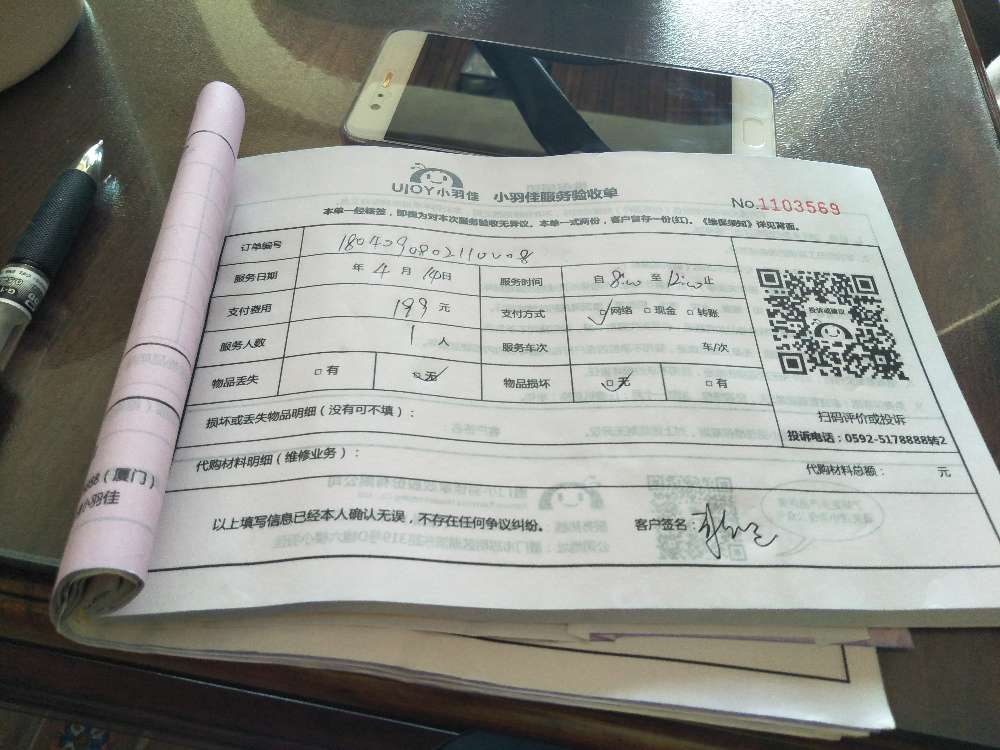 UJOY小羽佳 小羽佳服务验收单
No.1103569
本单一经核签，即视为对本次服务验收无异议。本单一式两份，客户留存一份(红)。《维保须知》详见背面。
订单编号
服务日期 年 4 月 14 日 服务时间 自 8:00 至 12:00 止
支付费用 199 元 支付方式 ☑网络 □现金 □转账
服务人数 1 人 服务车次 车/次
物品丢失 □有 ☑无 物品损坏 ☑无 □有
投诉或建议
扫码评价或投诉
投诉电话：0592-5178888转2
损坏或丢失物品明细（没有可不填）：
代购材料明细（维修业务）： 代购材料总额： 元
以上填写信息已经本人确认无误，不存在任何争议纠纷。 客户签名：
（厦门）
小羽佳